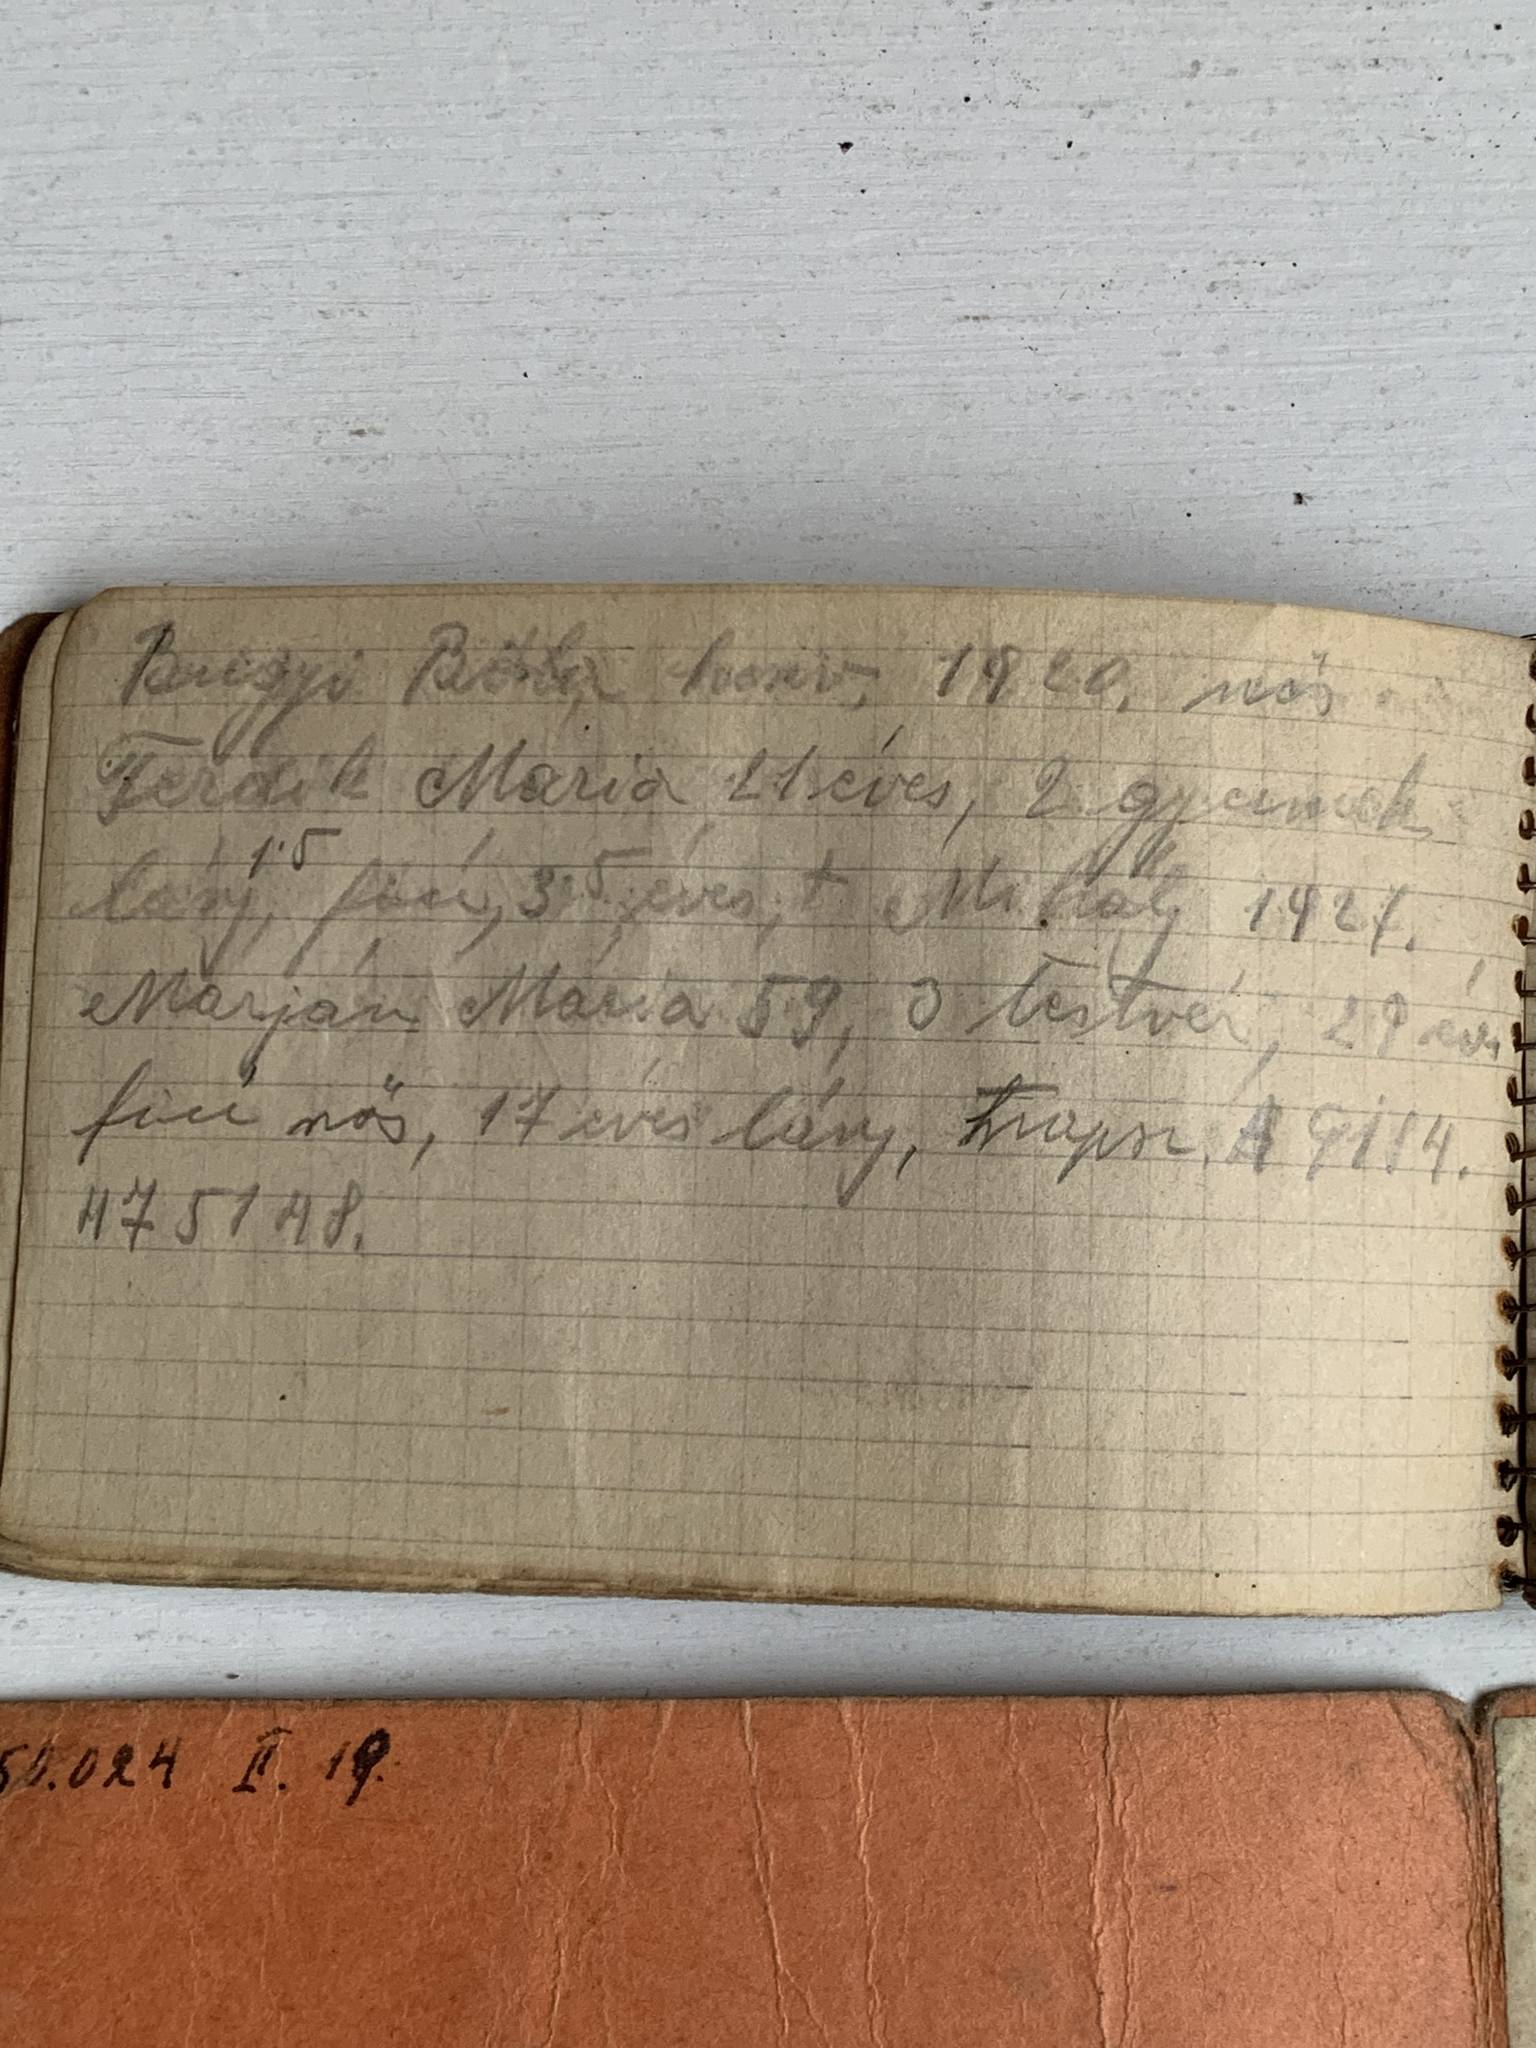 Bugyi Béla honv. 1920. nős
Ferdik Mária 21 éves, 2 gyermek
1.5
lány, fiú, 3.5 éves, + Mihály 1927.
Marján Mária 59, 3 testvér, 28 év
fiú nős, 17 éves lány, A
475148.
024 II. 19.